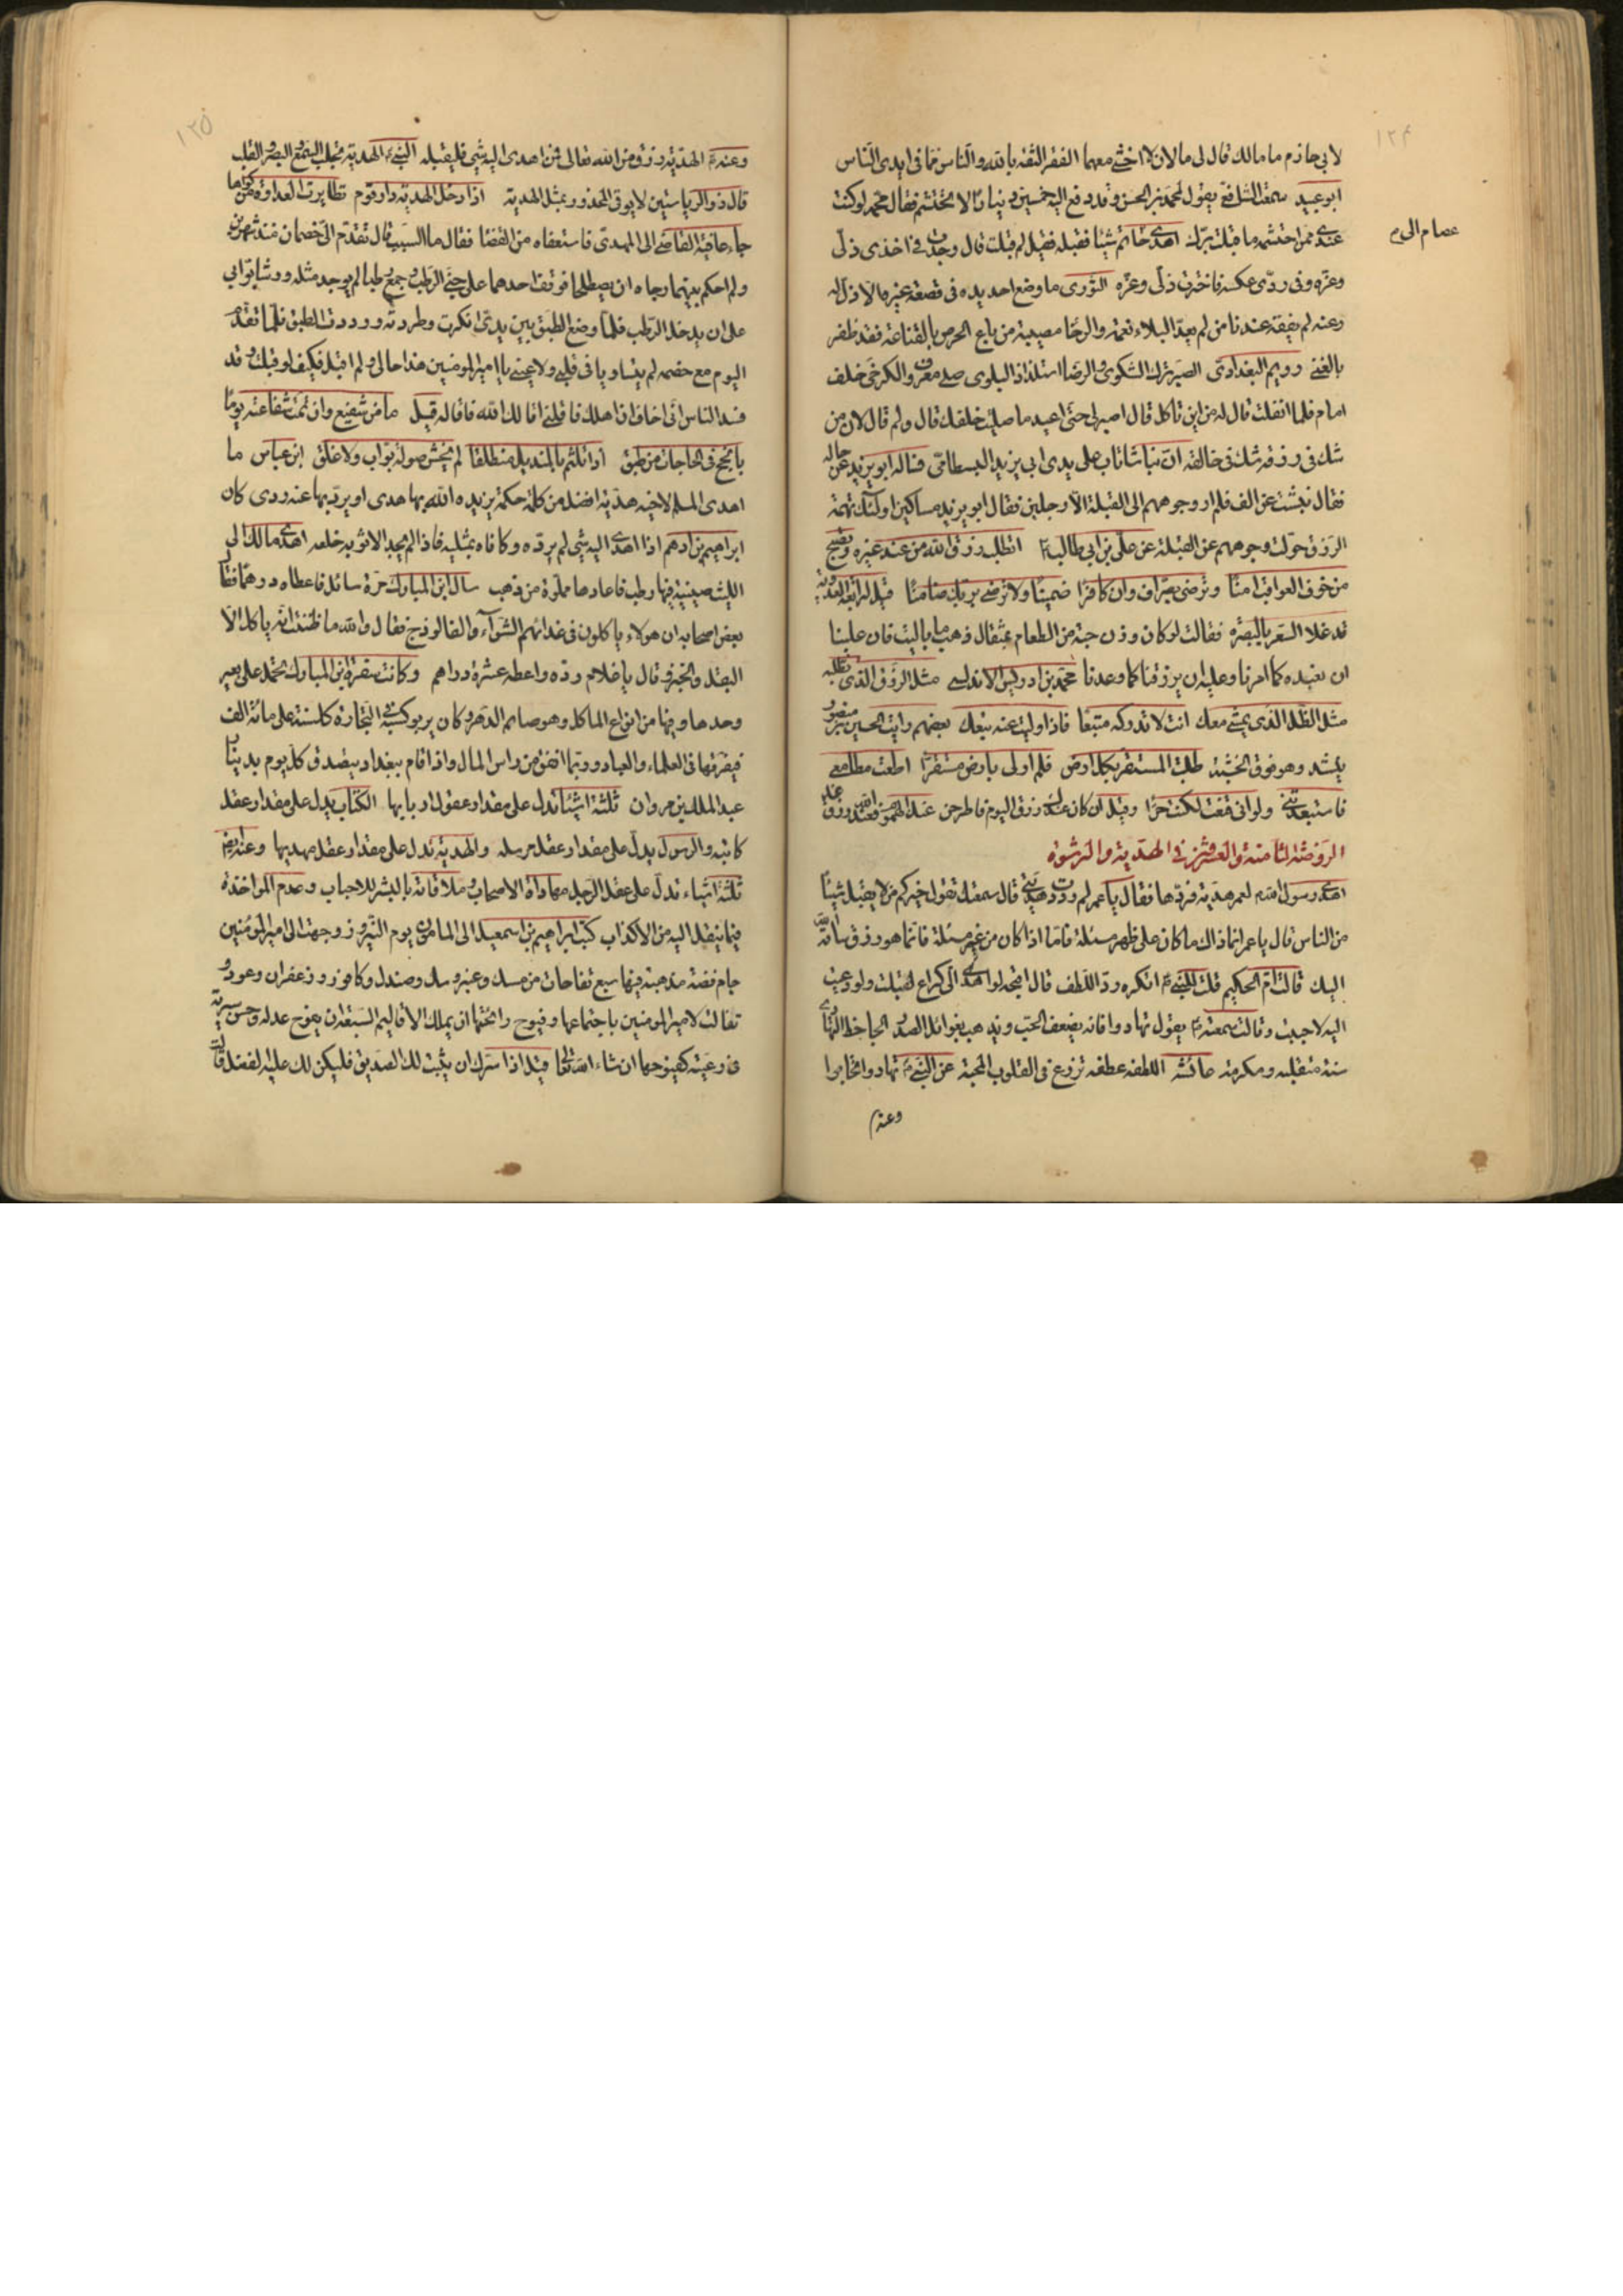 ١٢٤
لابي حازم ما مالك قال لي مالان لا اخشى معهما الفقر الثقة بالله والياس مما في ايدي الناس
ابو عبيد سمعت الشافعي يقول لمحمد بن الحسن وقد دفع اليه خمسين دينارا لا تحتشم فقال محمد لو كنت
عندي ممن احتشمه ما قبلت برك اهدى حاتم شيئا فقبله فقيل لم قبلت قال وجدت في اخذي ذلي
عصام الى م
وعزه وفي ردي عكسه فاخترت ذلي وعزه الثوري ما وضع احد يده في قصعة غيره الا ذل له
وعنه لم يفقه عندنا من لم يعد البلاء نعمة والرخا مصيبة من باع الحرص بالقناعة فقد ظفر
بالغنى رويم البغدادي الصبر ترك الشكوى والرضا استلذاذ البلوى صلى معروف الكرخي خلف
امام فلما انفتل قال له من اين تاكل قال اصبر لي حتى اعيد ما صليت خلفك قال ولم قال لان من
شك في رزقه شك في خالقه ان نباشا تاب على يدي ابي يزيد البسطامي فساله ابو يزيد عن حاله
فقال نبشت عن الف فلم ار وجوههم الى القبلة الا رجلين فقال ابو يزيد مساكين اولئك تهمة
الرزق حولت وجوههم عن القبلة عن علي بن ابي طالب اتطلب رزق الله من عند غيره وتصبح
من خوف العواقب امنا وترضى بصراف وان كان كافرا ضمينا ولا ترضى بربك ضامنا قيل لرابعة العدوية
قد غلا السعر بالبصرة فقالت لو كان وزن حبة من الطعام بمثقال ذهب ما باليت فان علينا
ان نعبده كما امرنا وعليه ان يرزقنا كما وعدنا محمد بن ادريس الاندلسي مثل الرزق الذي تطلبه
مثل الظل الذي يمشي معك انت لا تدركه متبعا فاذا وليت عنه تبعك بعضهم رايت الحسين بن منصور
ينشد وهو فوق الخشبة طلبت المستقر بكل ارض فلم ار لي بارض مستقرا اطعت مطامعي
فاستعبدتني ولو اني قنعت لكنت حرا وقيل ان كان عندك رزق اليوم فاطرحن عنك الهموم فعند الله رزق غد
الروضة الثامنة والعشرون في الهدية والرشوة
اهدى رسول الله لعمر هدية فردها فقال يا عمر لم رددت هديتي قال سمعتك تقول خيركم من لا يقبل شيئا
من الناس قال يا عمر انما ذاك ما كان على ظهر مسئلة فاما اذا كان من غير مسئلة فانما هو رزق ساقه الله
اليك قالت ام الحكيم قلت للنبي اتكره رد اللطف قال ما اقبحه لو اهدي الي كراع لقبلت ولو دعيت
اليه لاجبت وقالت سمعته يقول تهادوا فانه يضعف الحب ويذهب بغوائل الصدر الجاحظ التهادي
سنة متقبلة ومكرمة عائشة اللطفة عطفة تزرع في القلوب المحبة عن النبي تهادوا تحابوا
وعنه
١٢٥
وعنه الهدية رزق من الله تعالى فمن اهدي اليه شيء فليقبله النبي الهدية تجلب السمع والبصر والقلب
قال ذو الرياستين لا يوقى المحذور بمثل الهدية اذا دخل الهدية دار قوم تطايرت العداوة من كواها
جاء عافية القاضي الى المهدي فاستعفاه من القضا فقال ما السبب قال تقدم الي خصمان منذ شهرين
ولم احكم بينهما رجاه ان يصطلحا فوقف احدهما على حبي الرطب فجمع رطبا لم يوجد مثله ورشا بوابي
على ان يدخل الرطب فلما وضع الطبق بين يدي انكرت وطردته ورددت الطبق فلما تقدم
اليوم مع خصمه لم يتساويا في قلبي ولا عيني يا امير المومنين هذا حالي ولم اقبل فكيف لو قبلت وقد
فسد الناس اني اخاف ان اهلك فاقلني اقالك الله فاقاله قيل ما من شفيع وان تمت شفاعته يوما
بانجح في الحاجات من طبق اذا تلثم بالمنديل منطلقا لم يخش صولة بواب ولا غلق ابن عباس ما
اهدى المسلم لاخيه هدية افضل من كلمة حكمة يزيده الله بها هدى او يرد بها عنه ردى كان
ابراهيم بن ادهم اذا اهدي اليه شيء لم يرده وكافاه بمثليه فاذا لم يجد الا ثوبه خلعه اهدى مالك الى
الليث صينية فيها رطب فاعادها مملوة من ذهب سال ابن المبارك مرة سائل فاعطاه درهما فقال
بعض اصحابه ان هولاء ياكلون في غدائهم الشواء والفالوذج فقال والله ما ظننت انه ياكل الا
البقل والخبز وقال يا غلام رده واعطه عشرة دراهم وكانت سفرة ابن المبارك تحمل على بعير
وحدها وفيها من انواع الماكل وهو صائم الدهر وكان يربو كسبه التجارة كل سنة على مائة الف
فيفرقها في العلماء والعباد وربما انفق من راس المال واذا قام ببغداد يتصدق كل يوم بدينار
عبد الملك بن مروان ثلثة اشيئا تدل على مقدار عقول اربابها الكتاب يدل على مقدار عقل
كاتبه والرسول يدل على مقدار عقل مرسله والهدية تدل على مقدار عقل مهديها وعنه ايضا
ثلثة اشياء تدل على عقل الرجل مهاداة الاصحاب وملاقاته بالبشر للاحباب وعدم المواخذة
فيما ينقل اليه من الاكذاب كتب ابراهيم بن اسمعيل الى المامون يوم النيروز وجهت الى امير المومنين
جام فضة مذهبة فيها سبع تفاحات من مسك وعنبر وسك وصندل وكافور وزعفران وعود
تفالت لامير المومنين باجتماعها وفيوح رائحتها ان يملك الاقاليم السبعة وان يفوح عدله وحسن سيرته
في رعيته كفيوحها ان شاء الله تعالى قيل اذا سرك ان يثبت لك الصديق فليكن لك عليه الفضل قال